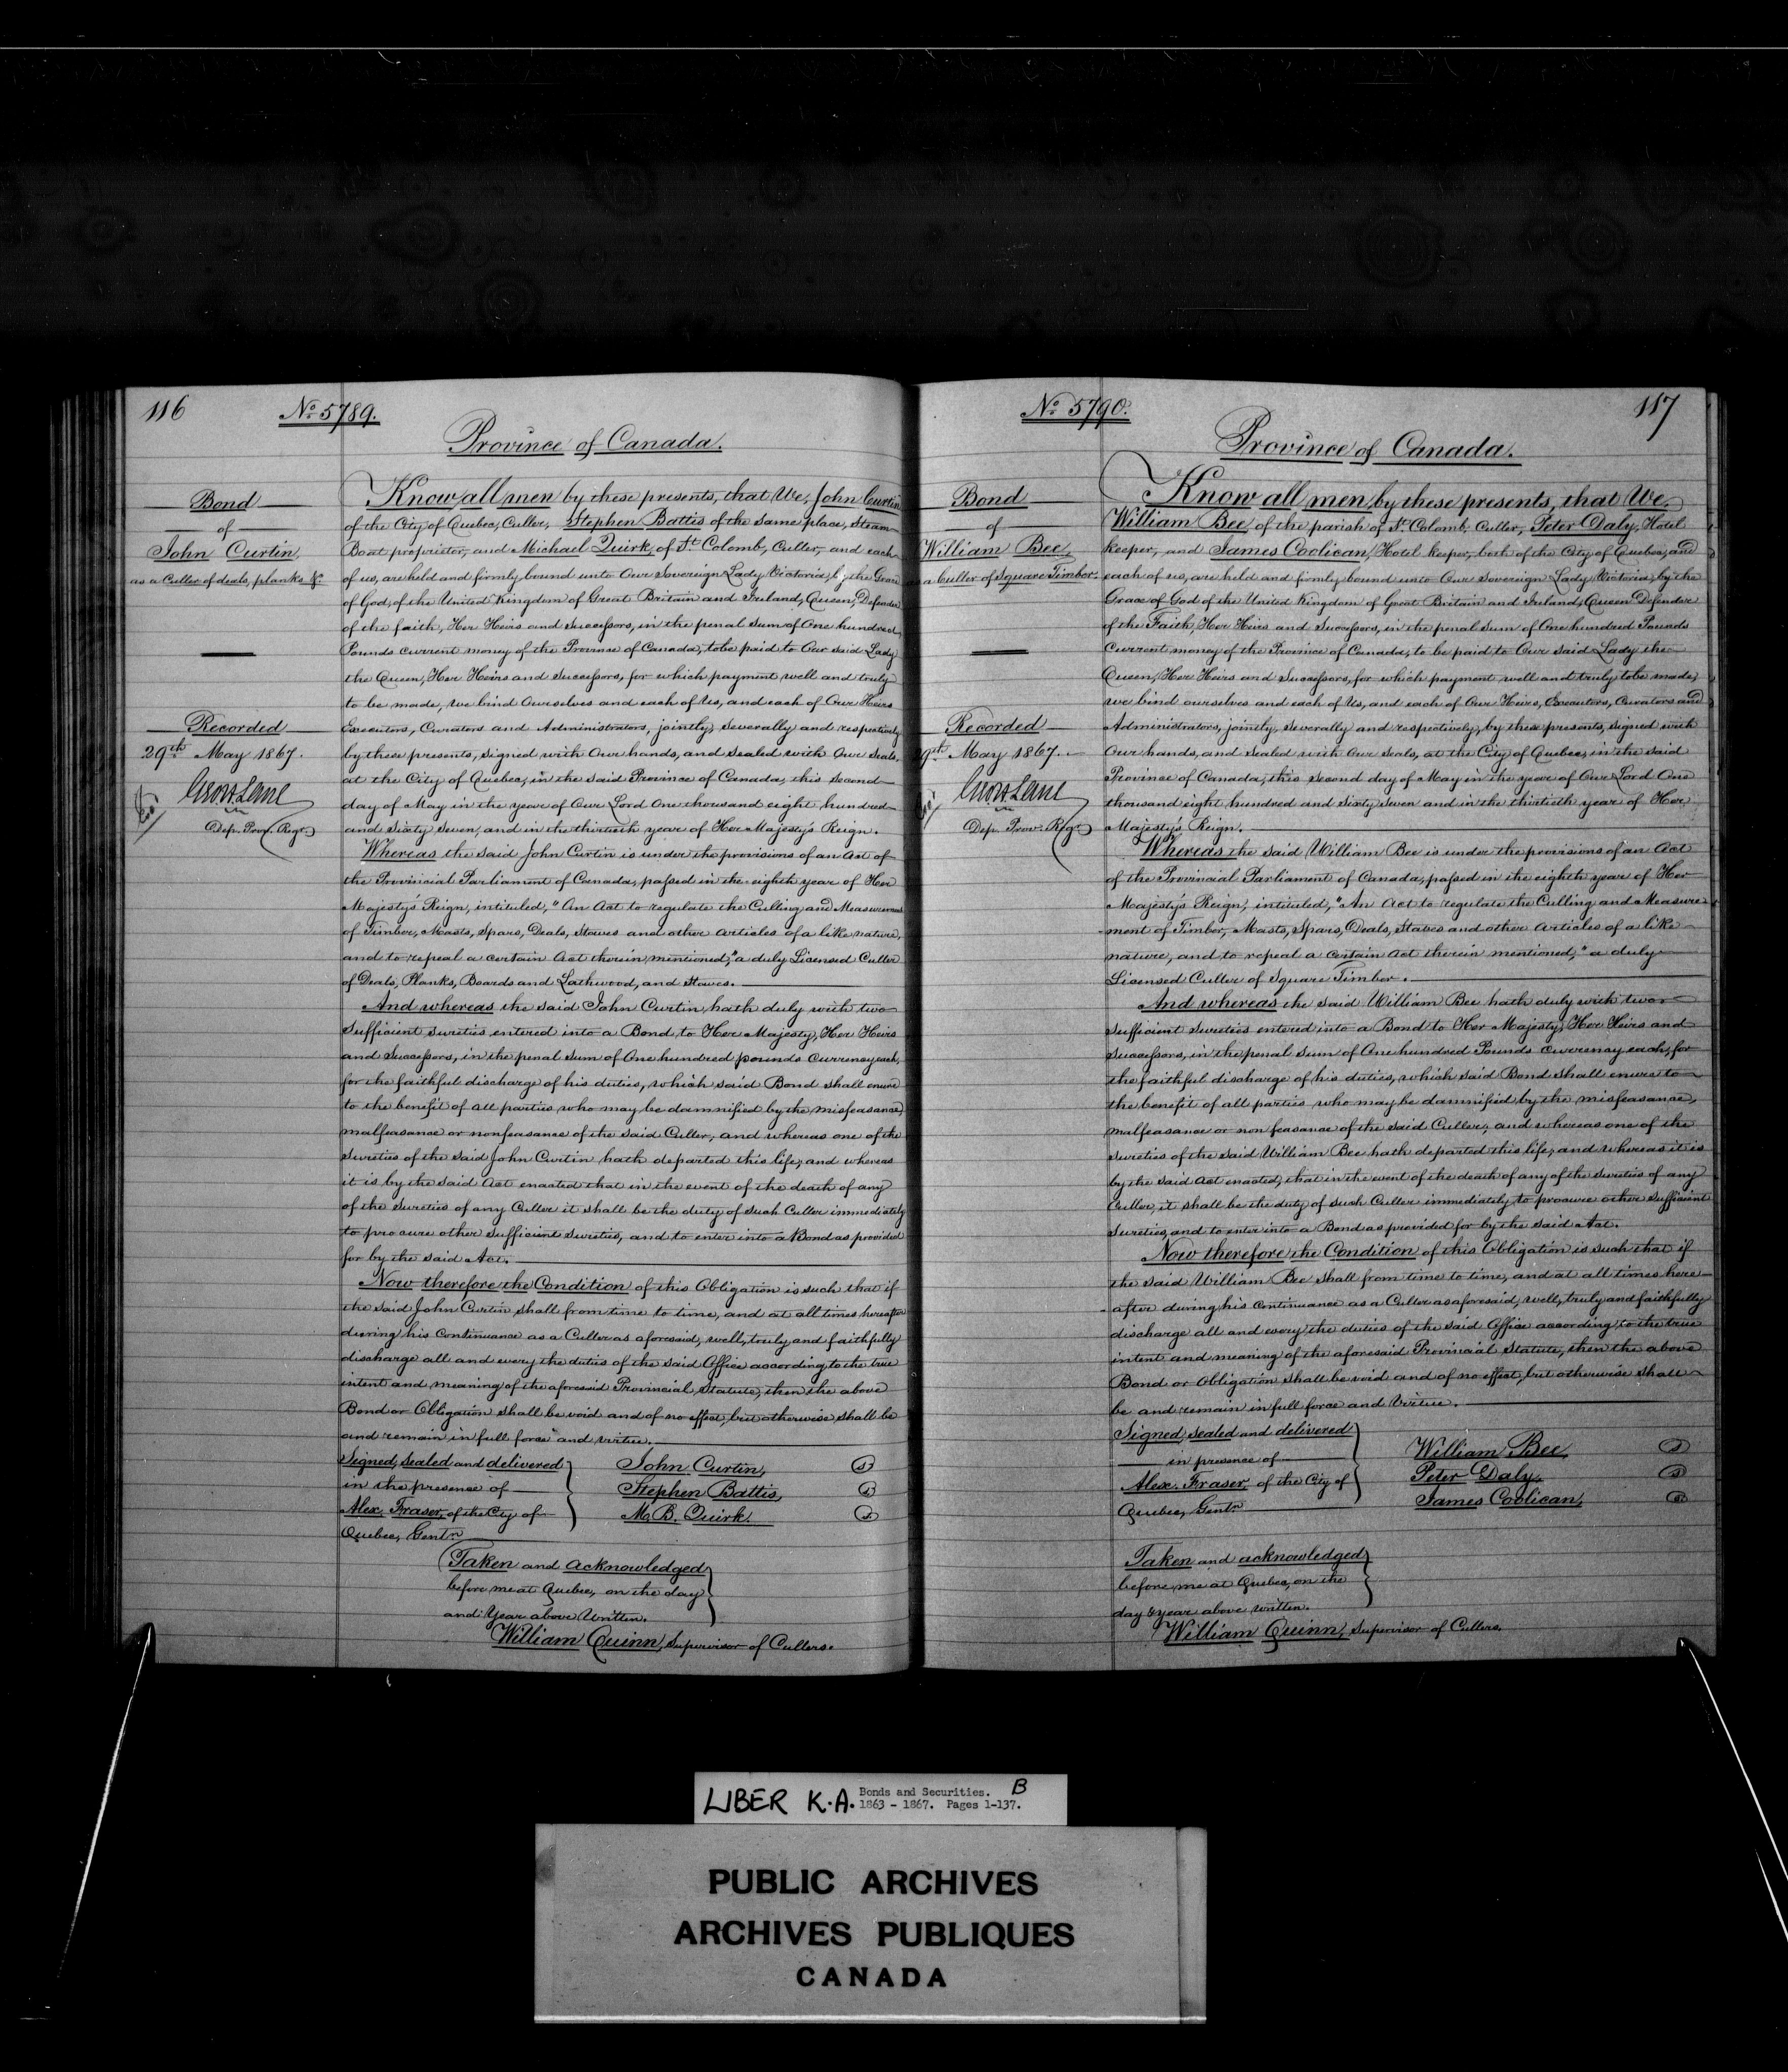 116
No. 5789.
Province of Canada.
Bond
of
John Curtin,
as a Culler of deals, planks &c
Recorded
29th May 1867.
Geo H Lane
Dep. Prov. Regr.
Know all men by these presents, that We, John Curtin
of the City of Quebec, Culler, Stephen Battis of the same place, Steam-
Boat proprietor, and Michael Quirk, of St. Colomb, Culler, and each
of us, are held and firmly bound unto Our Sovereign Lady Victoria, by the Grace
of God, of the United Kingdom of Great Britain and Ireland, Queen, Defender
of the faith, Her Heirs and Successors, in the penal sum of One hundred
Pounds current money of the Province of Canada, to be paid to Our said Lady
the Queen, Her Heirs and Successors, for which payment well and truly
to be made, we bind Ourselves and each of Us, and each of Our Heirs
Executors, Curators and Administrators, jointly, severally and respectively
by these presents, signed with Our hands, and sealed with Our Seals,
at the City of Quebec, in the said Province of Canada, this second
day of May in the year of Our Lord One thousand eight hundred
and Sixty Seven, and in the thirtieth year of Her Majesty's Reign.
Whereas the said John Curtin is under the provisions of an Act of
the Provincial Parliament of Canada, passed in the eighth year of Her
Majesty's Reign, intituled, "An Act to regulate the Culling and Measurement
of Timber, Masts, Spars, Deals, Staves and other articles of a like nature,
and to repeal a certain Act therein mentioned," a duly Licensed Culler
of Deals, Planks, Boards and Lathwood, and Staves.
And whereas the said John Curtin, hath duly with two
Sufficient Sureties entered into a Bond to Her Majesty, Her Heirs
and Successors, in the penal sum of One hundred pounds Currency each,
for the faithful discharge of his duties, which said Bond shall enure
to the benefit of all parties who may be damnified by the misfeasance,
malfeasance or nonfeasance of the said Culler; and whereas one of the
Sureties of the said John Curtin hath departed this life; and whereas
it is by the said Act enacted that in the event of the death of any
of the Sureties of any Culler it shall be the duty of such Culler immediately
to procure other sufficient Sureties, and to enter into a Bond as provided
for by the said Act.
Now therefore the Condition of this Obligation is such that if
the said John Curtin shall from time to time, and at all times hereafter
during his continuance as a Culler as aforesaid, well, truly, and faithfully
discharge all and every the duties of the said Office according to the true
intent and meaning of the aforesaid Provincial Statute, then the above
Bond or Obligation shall be void and of no effect, but otherwise shall be
and remain in full force and virtue.
Signed, sealed and delivered
in the presence of
Alex. Fraser, of the City of
Quebec, Gentn.
John Curtin,
Stephen Battis,
M. B. Quirk.
Taken and acknowledged
before me at Quebec, on the day
and Year above Written.
William Quinn, Supervisor of Cullers.
No. 5790.
117
Province of Canada.
Bond
of
William Bee,
as a Culler of Square Timber.
Recorded
29th May 1867.
Geo H Lane
Dep. Prov. Regr.
Know all men by these presents, that We,
William Bee, of the parish of St. Colomb, Culler, Peter Daly, Hotel
keeper, and James Coolican, Hotel keeper, both of the City of Quebec, and
each of us, are held and firmly bound unto Our Sovereign Lady Victoria, by the
Grace of God of the United Kingdom of Great Britain and Ireland, Queen Defender
of the Faith, Her Heirs and Successors, in the penal sum of One hundred Pounds
Current money of the Province of Canada, to be paid to Our said Lady the
Queen, Her Heirs and Successors, for which payment well and truly to be made,
we bind ourselves and each of Us, and each of Our Heirs, Executors, Curators and
Administrators, jointly, severally and respectively, by these presents, signed with
Our hands, and sealed with Our Seals, at the City of Quebec, in the said
Province of Canada, this second day of May in the year of Our Lord One
thousand eight hundred and Sixty Seven and in the thirtieth year of Her
Majesty's Reign.
Whereas the said William Bee is under the provisions of an Act
of the Provincial Parliament of Canada, passed in the eighth year of Her
Majesty's Reign, intituled, "An Act to regulate the Culling and Measure-
-ment of Timber, Masts, Spars, Deals, Staves and other articles of a like
nature, and to repeal a certain Act therein mentioned," a duly
Licensed Culler of Square Timber.
And whereas the said William Bee hath duly with two
sufficient Sureties entered into a Bond to Her Majesty, Her Heirs and
Successors, in the penal sum of One hundred Pounds currency each, for
the faithful discharge of his duties, which said Bond shall enure to
the benefit of all parties who may be damnified by the misfeasance,
malfeasance or non feasance of the said Culler; and whereas one of the
Sureties of the said William Bee hath departed this life; and whereas it is
by the said Act enacted, that in the event of the death of any of the Sureties of any
Culler, it shall be the duty of such Culler immediately to procure other Sufficient
Sureties, and to enter into a Bond as provided for by the said Act.
Now therefore the Condition of this Obligation is such that if
the said William Bee shall from time to time, and at all times here-
-after during his continuance as a Culler as aforesaid, well, truly and faithfully
discharge all and every the duties of the said Office according to the true
intent and meaning of the aforesaid Provincial Statute, then the above
Bond or Obligation shall be void and of no effect, but otherwise shall
be and remain in full force and virtue.
Signed, sealed and delivered
in presence of
Alex. Fraser, of the City of
Quebec, Gentn.
William Bee,
Peter Daly,
James Coolican,
Taken and acknowledged
before me at Quebec, on the
day & year above written.
William Quinn, Supervisor of Cullers.
LIBER K.A. Bonds and Securities. B
1863 - 1867. Pages 1-137.
PUBLIC ARCHIVES
ARCHIVES PUBLIQUES
CANADA